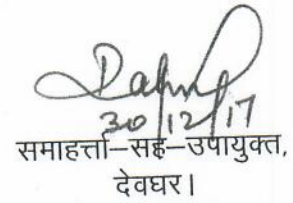 30/12/17
समाहर्त्ता–सह–उपायुक्त,
देवघर।